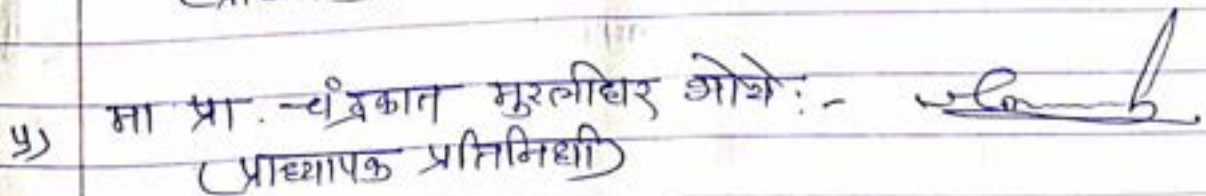 ५) मा प्रा. चंद्रकात मुरलीधर गोरे:-
(प्राध्यापक प्रतिनिधी)